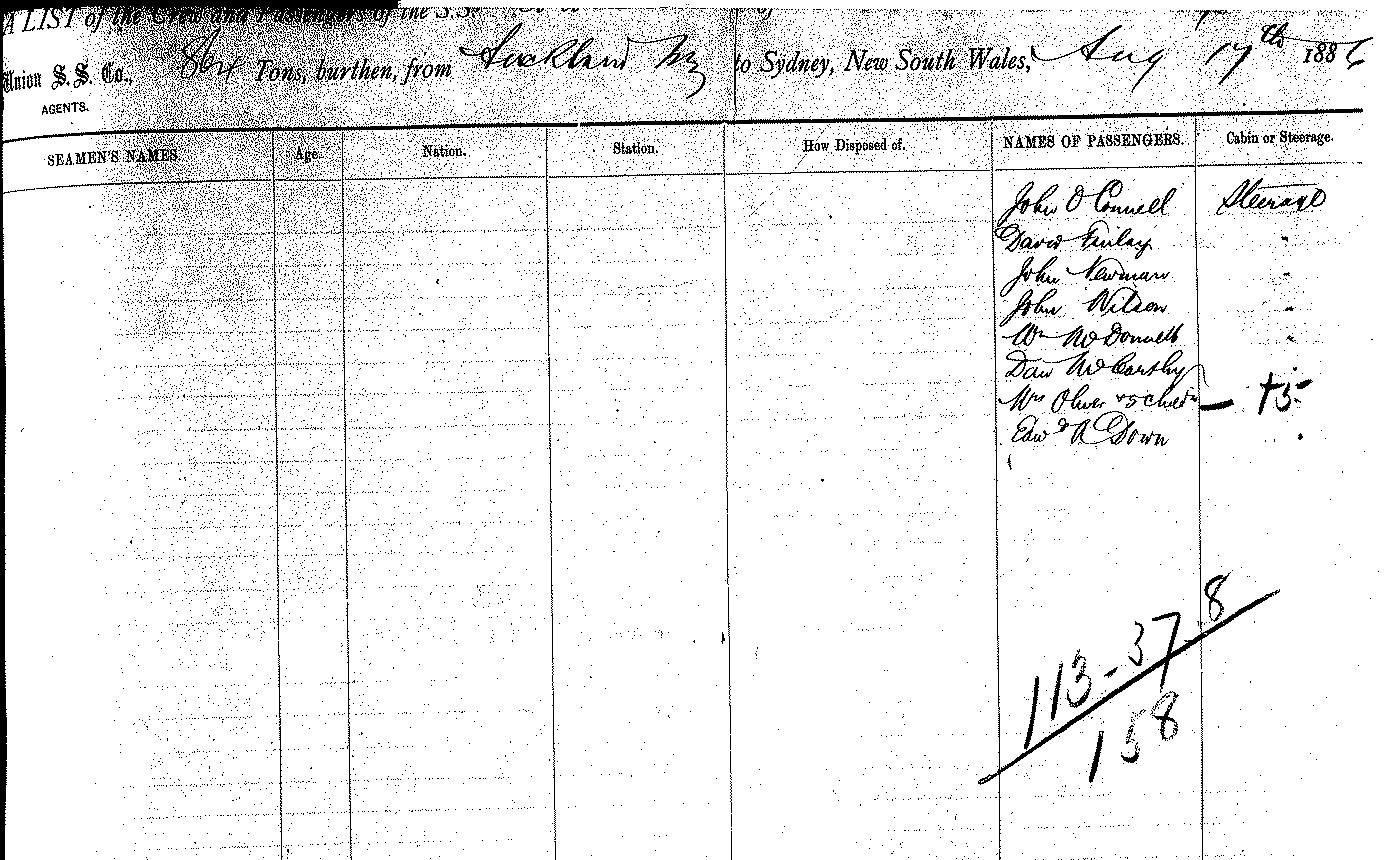 A LIST of the Crew and Passengers of the S.S. of
Union S. S. Co., Tons, burthen, from Auckland NZ to Sydney, New South Wales, Aug 17th 1886
AGENTS.
SEAMEN'S NAMES. Age. Nation. Station. How Disposed of. NAMES OF PASSENGERS. Cabin or Steerage.
John O Connell Steerage
David Finlay "
John Newman "
John Wilson "
Wm McDonnell "
Dan McCarthy "
Mrs Oliver & 5 child — +5
Edwd A Down "
113 - 37 8
158